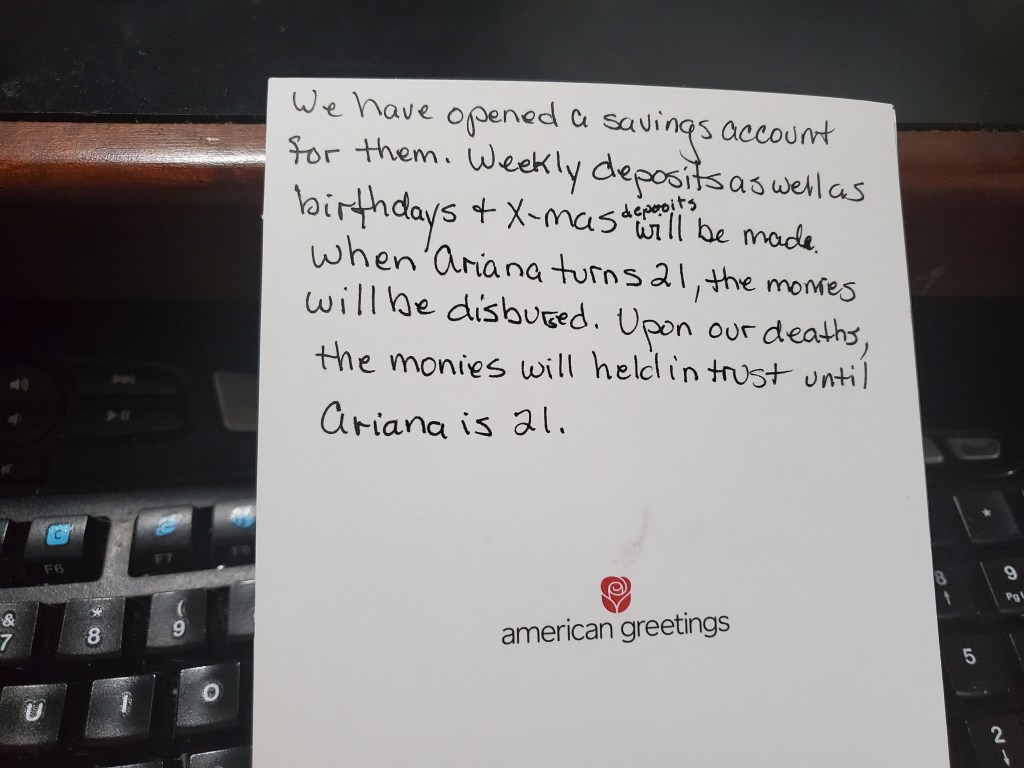 We have opened a savings account
for them. Weekly deposits as well as
birthdays + X-mas deposits will be made.
When Ariana turns 21, the monies
will be disbused. Upon our deaths,
the monies will held in trust until
Ariana is 21.
american greetings
F6
F7
F8
&
7
*
8
(
9
U
I
O
*
8
9
5
2